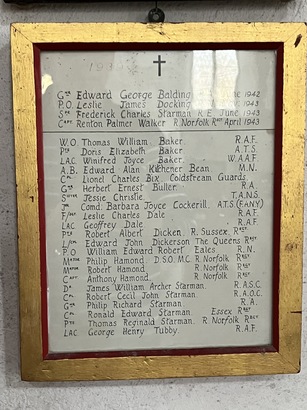 193
Gnr Edward George Balding 1942
P.O. Leslie James Docking 1943
Spr Frederick Charles Starman R.E. June 1943
Capt Renton Palmer Walker R. Norfolk Regt April 1943
W.O. Thomas William Baker. R.A.F.
Pte Doris Elizabeth Baker A.T.S.
LAC. Winifred Joyce Baker. W.A.A.F.
A.B. Edward Alan Kitchener Bean M.N.
Cpl Lionel Charles Bix. Coldstream Guards.
Gnr Herbert Ernest Buller R.A.
Jessie Christie T.A.N.S.
Jr Comd: Barbara Joyce Cockerill. A.T.S. (F.A.N.Y.)
F/Sgt Leslie Charles Dale R.A.F.
LAC Geoffrey Dale R.A.F.
Pte Robert Albert Dicken. R. Sussex. Regt
L/Cpl Edward John Dickerson The Queens Regt
P.O William Edward Robert Eales R.N.
Major Philip Hamond D.S.O. M.C. R. Norfolk Regt
Major Robert Hamond R. Norfolk Regt
Capt Anthony Hamond R. Norfolk Regt
Dr James William Archer Starman. R.A.S.C.
Cpl Robert Cecil John Starman. R.A.O.C.
Gnr Philip Richard Starman R.A.
Cpl Ronald Edward Starman Essex Regt
Pte Thomas Reginald Starman. R. Norfolk Regt
LAC George Henry Tubby. R.A.F.